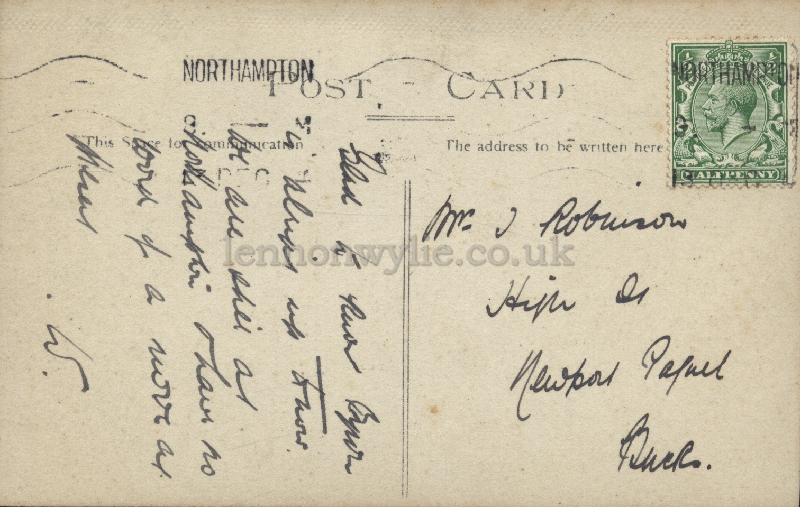 NORTHAMPTON
POST CARD
NORTHAMPTON
This Space for Communication
The address to be written here
DEC
HALFPENNY
Glad to hear Byron
is always up & now.
We are still at
Northampton & have no
word of a move as
W.
Mr J Robinson
High St
Newport Pagnell
Bucks.
lennonwylie.co.uk